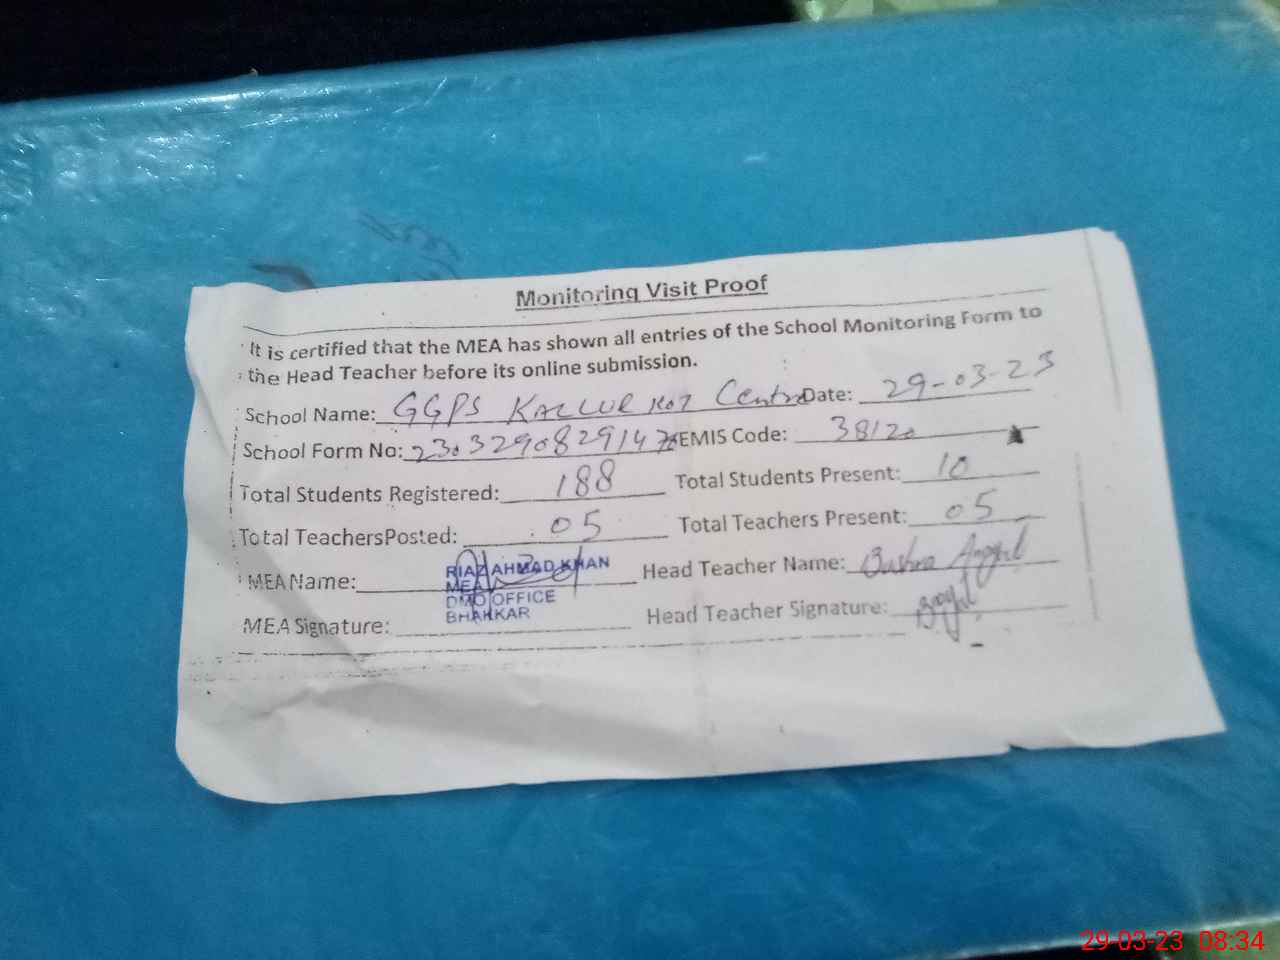 Monitoring Visit Proof
It is certified that the MEA has shown all entries of the School Monitoring Form to
the Head Teacher before its online submission.
School Name: GGPS KALLUR KOT Centre Date: 29-03-23
School Form No: EMIS Code: 38120
Total Students Registered: 188 Total Students Present: 10
Total TeachersPosted: 05 Total Teachers Present: 05
MEA Name: RIAZ AHMAD KHAN Head Teacher Name: Bushra
MEA
DMO OFFICE
BHAKKAR
MEA Signature: Head Teacher Signature:
29-03-23 08:34